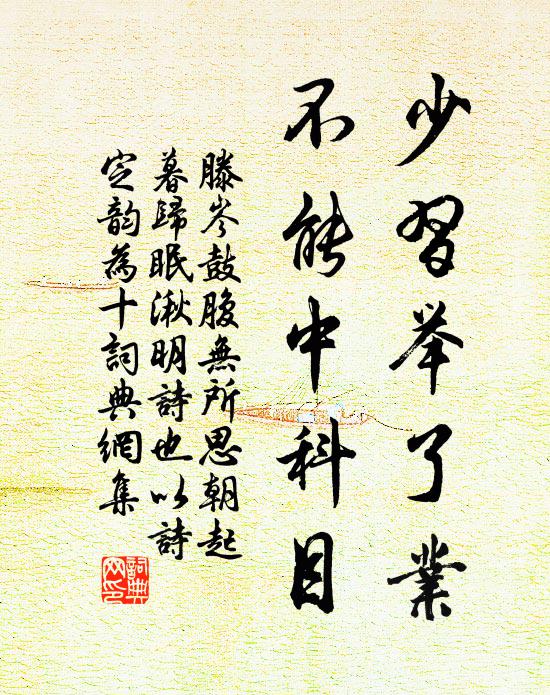 少習举了業
不能中科目
滕岑鼓腹無所思朝起
暮歸眠湫明詩也以詩
定韵為十詞典網集
詞典
网印